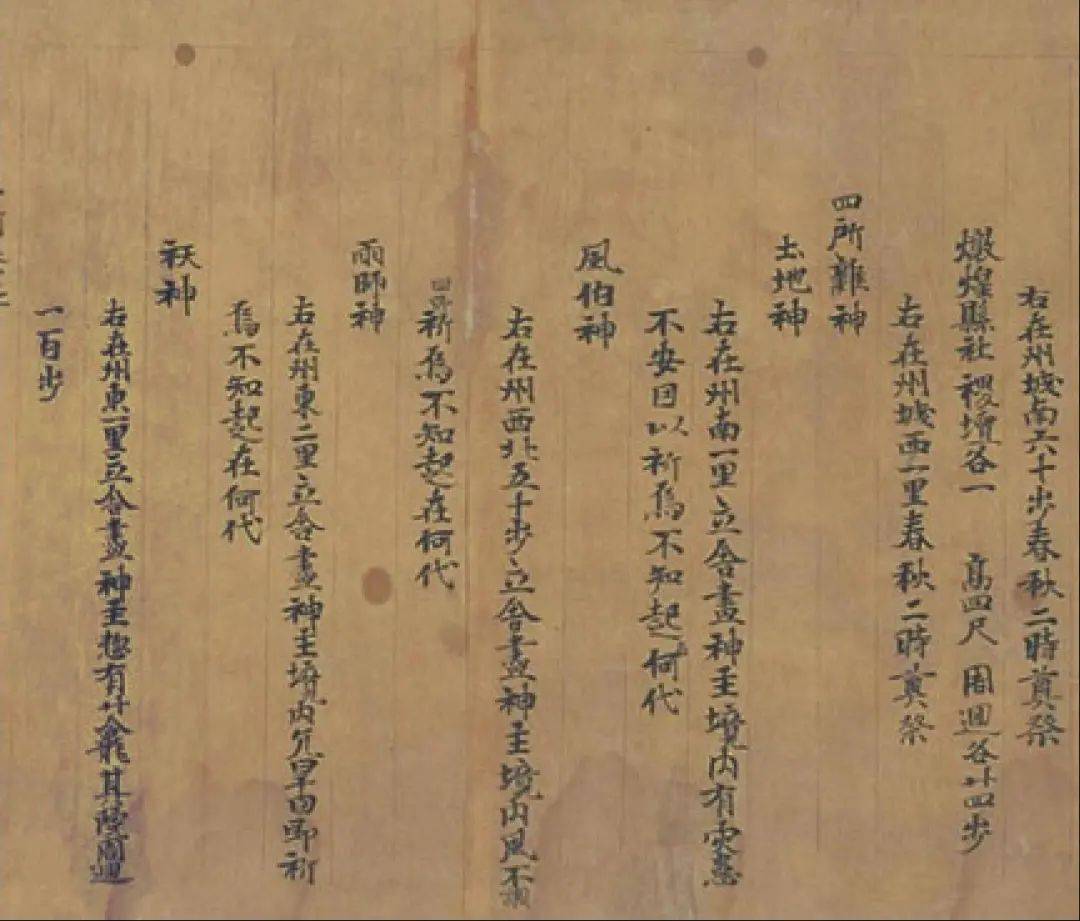 右在州城南六十步春秋二時奠祭
燉煌縣社稷壇各一　高四尺　周迴各廿四步
右在州城西一里春秋二時奠祭
四所雜神
土地神
右在州南一里立舍畫神主境内有灾患
不安因以祈焉不知起何代
風伯神
右在州西北五十步立舍畫神主境内風不調
因即祈焉不知起在何代
雨師神
右在州東二里立舍畫神主境内亢旱因即祈
焉不知起在何代
祆神
右在州東一里立舍畫神主揔有廿龕其院周迴
一百步